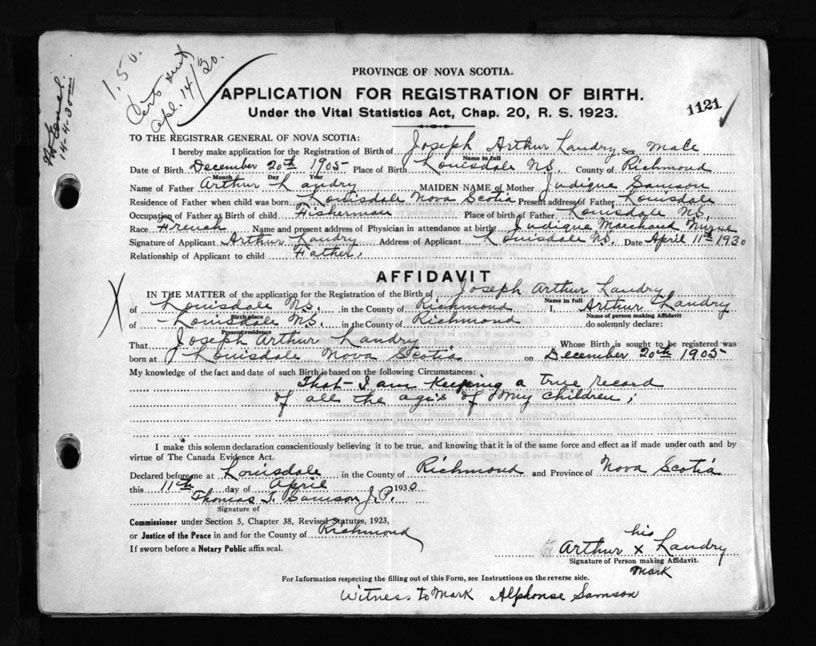 1.50
Certs sent
Apl. 14/30.
14-4-30
PROVINCE OF NOVA SCOTIA.
APPLICATION FOR REGISTRATION OF BIRTH.
Under the Vital Statistics Act, Chap. 20, R. S. 1923.
1121
TO THE REGISTRAR GENERAL OF NOVA SCOTIA:
I hereby make application for the Registration of Birth of Joseph Arthur Landry Sex Male
Name in full
Date of Birth December 20th 1905 Place of Birth Louisdale N.S. County of Richmond
Month Day Year
Name of Father Arthur Landry MAIDEN NAME of Mother Judique Samson
Residence of Father when child was born Louisdale Nova Scotia Present address of Father Louisdale
Occupation of Father at Birth of child Fisherman Place of birth of Father Louisdale N.S.
Race French Name and present address of Physician in attendance at birth Judique Marchand Nurse
Signature of Applicant Arthur Landry Address of Applicant Louisdale N.S. Date April 11th 1930
Relationship of Applicant to child Father.
AFFIDAVIT
IN THE MATTER of the application for the Registration of the Birth of Joseph Arthur Landry
Name in full
of Louisdale N.S. in the County of Richmond I, Arthur Landry
Birth place Name of person making Affidavit
of Louisdale N.S. in the County of Richmond do solemnly declare:
Present residence
That Joseph Arthur Landry Whose Birth is sought to be registered was
born at Louisdale Nova Scotia on December 20th 1905
My knowledge of the fact and date of such Birth is based on the following Circumstances:
That I am Keeping a true record
of all the age's of My children;
I make this solemn declaration conscientiously believing it to be true, and knowing that it is of the same force and effect as if made under oath and by
virtue of The Canada Evidence Act.
Declared before me at Louisdale in the County of Richmond and Province of Nova Scotia
this 11th day of April 1930
Thomas T. Samson J.P.
Signature of
Commissioner under Section 5, Chapter 38, Revised Statutes, 1923,
or Justice of the Peace in and for the County of Richmond
If sworn before a Notary Public affix seal.
his
Arthur x Landry
Signature of Person making Affidavit.
Mark
For Information respecting the filling out of this Form, see Instructions on the reverse side.
Witness to Mark Alphonse Samson